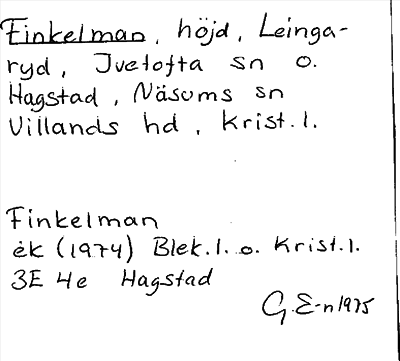 Finkelman, höjd, Leinga-
ryd, Ivetofta sn o.
Hagstad, Näsums sn
Villands hd, Krist.l.
Finkelman
ek (1974) Blek.l. o. Krist.l.
3E 4e Hagstad
G.E-n 1975